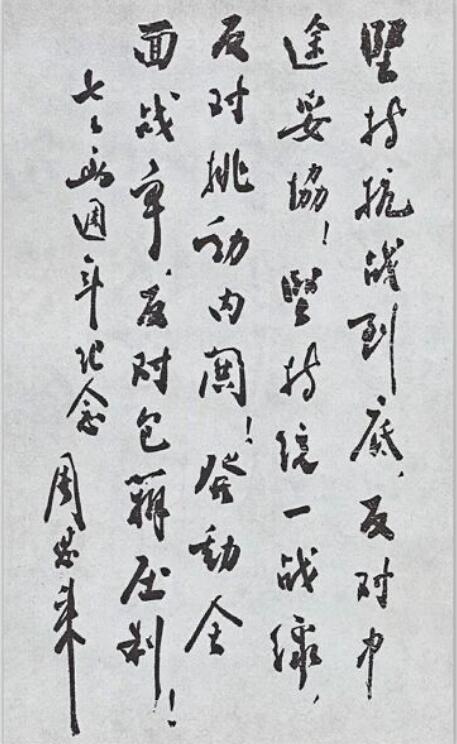 堅持抗战到底、反对中
途妥協！堅持统一战線、
反对挑动内鬨！発動全
面战争、反对包辦压制！
七七两週年纪念
周恩来